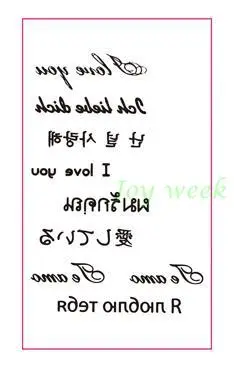 I love you
Ich liebe dich
난 널 사랑해
I love you
Joy week
ผมรักคุณ
愛している
Te amo Te amo
Я люблю тебя